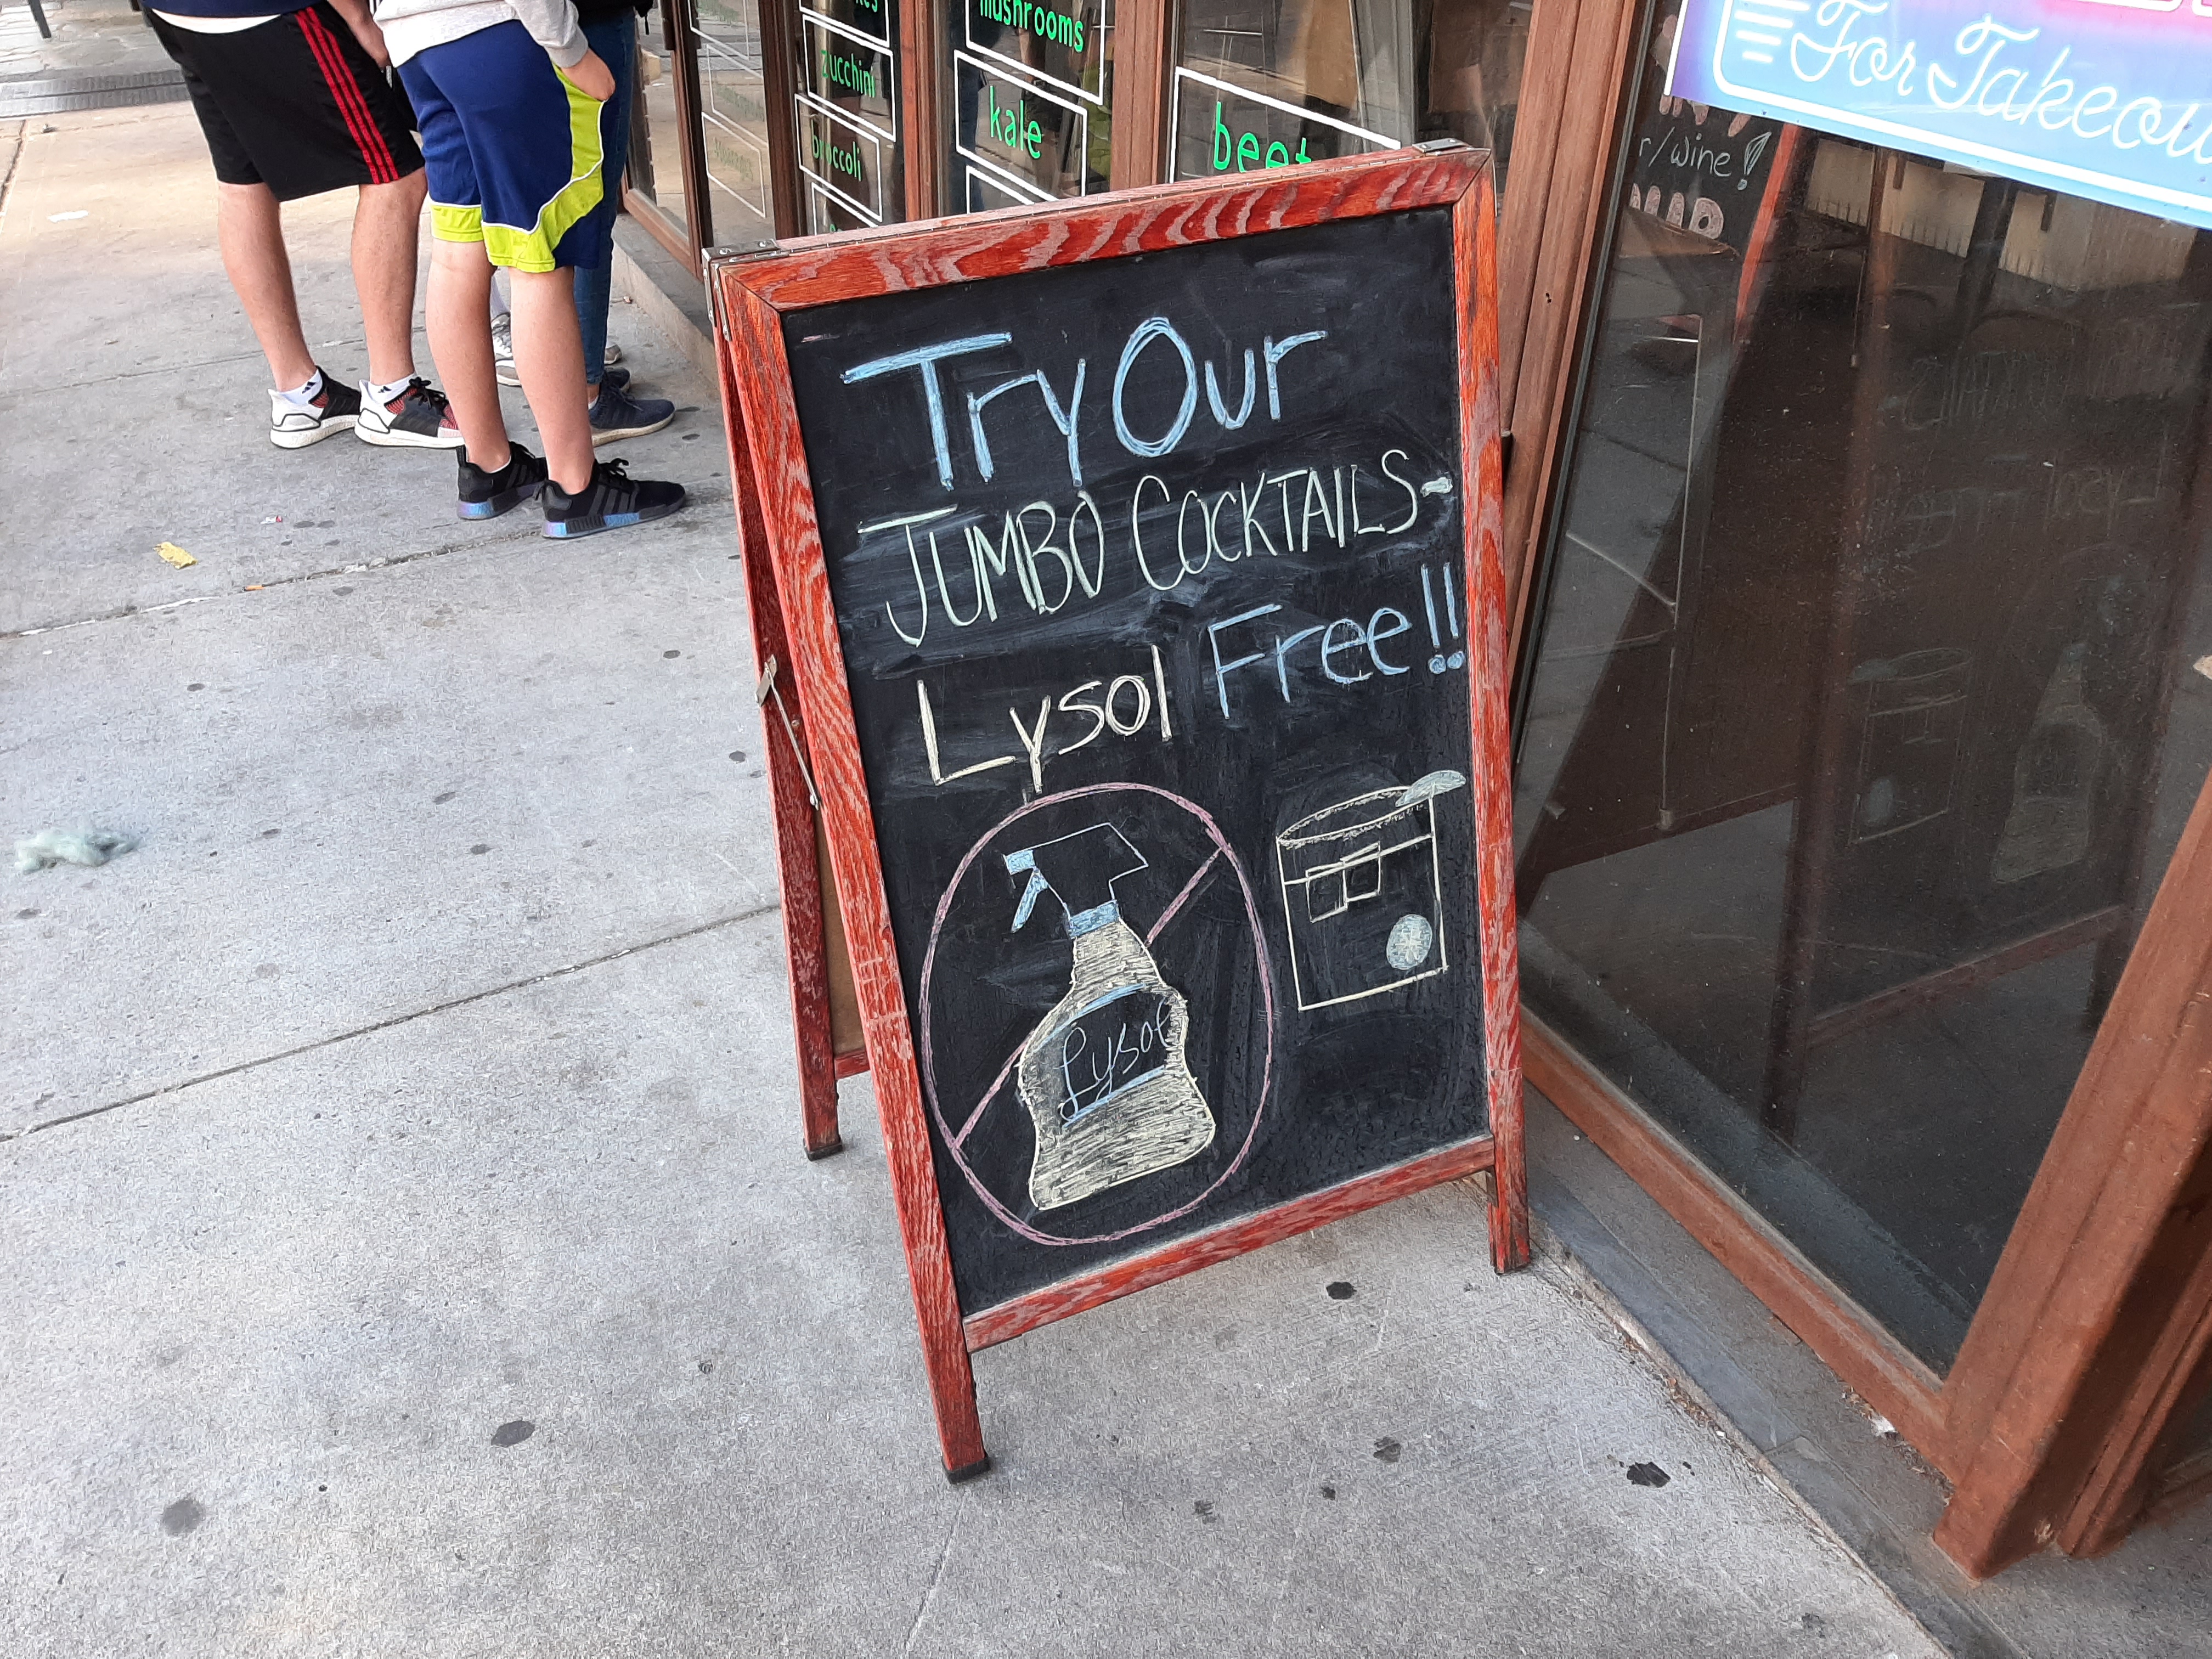 mushrooms
zucchini
kale
broccoli
beet
For Takeou
/wine!
Try Our
JUMBO COCKTAILS-
Lysol Free!!
Lysol